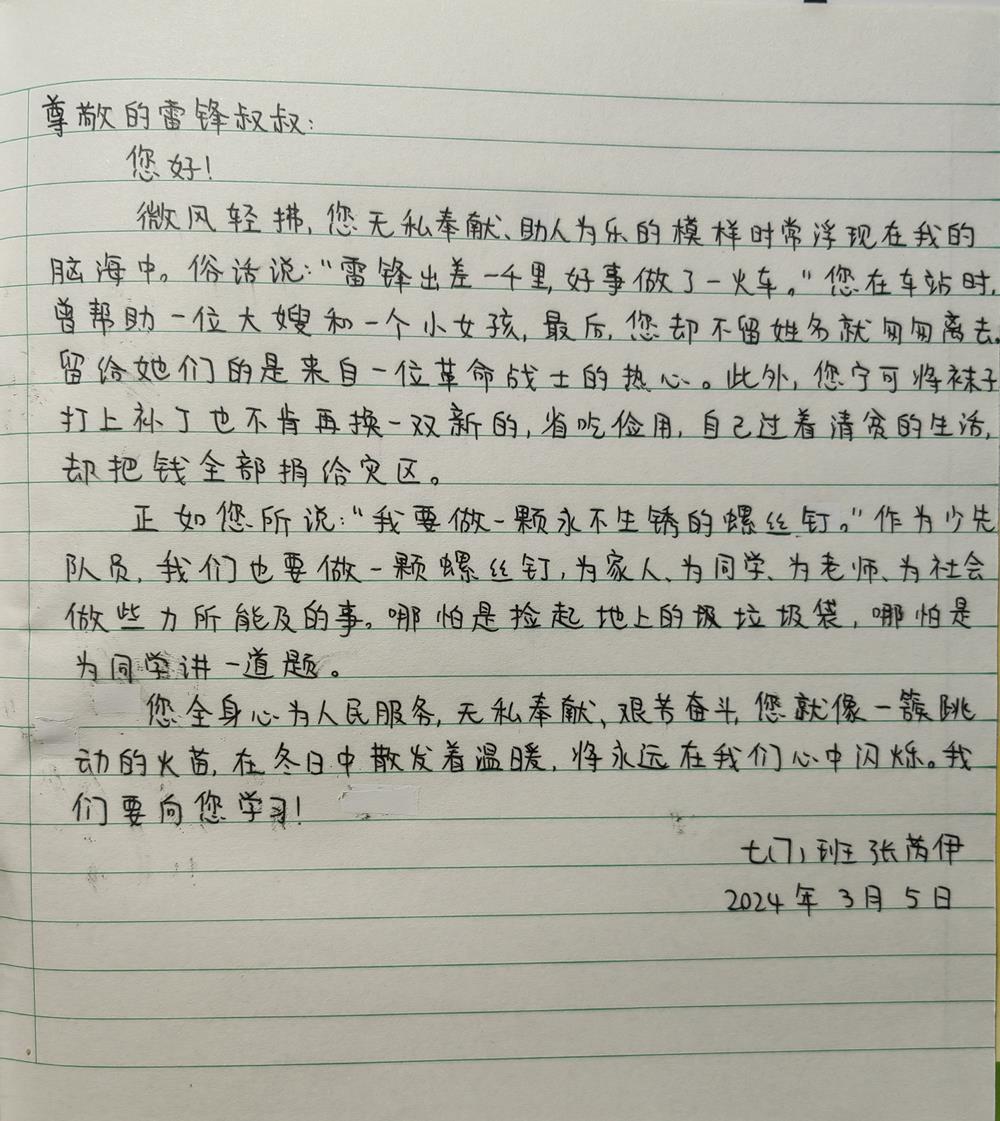 尊敬的雷锋叔叔:
您好!
微风轻拂,您无私奉献、助人为乐的模样时常浮现在我的
脑海中。俗话说:“雷锋出差一千里,好事做了一火车。”您在车站时,
曾帮助一位大嫂和一个小女孩,最后,您却不留姓名就匆匆离去。
留给她们的是来自一位革命战士的热心。此外,您宁可将袜子
打上补丁也不肯再换一双新的,省吃俭用,自己过着清贫的生活,
却把钱全部捐给灾区。
正如您所说:“我要做一颗永不生锈的螺丝钉。”作为少先
队员,我们也要做一颗螺丝钉,为家人、为同学、为老师、为社会
做些力所能及的事。哪怕是捡起地上的圾垃圾袋,哪怕是
为同学讲一道题。
您全身心为人民服务,无私奉献、艰苦奋斗,您就像一簇跳
动的火苗,在冬日中散发着温暖,将永远在我们心中闪烁。我
们要向您学习!
七(7)班张芮伊
2024年3月5日